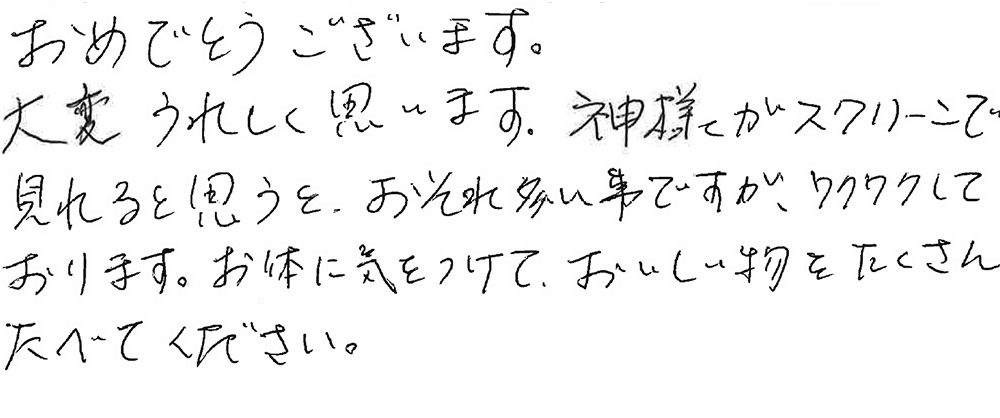 おめでとうございます。
大変うれしく思います。神様がスクリーンで
見れると思うと、おそれ多い事ですが、ワクワクして
おります。お体に気をつけて、おいしい物をたくさん
たべてください。